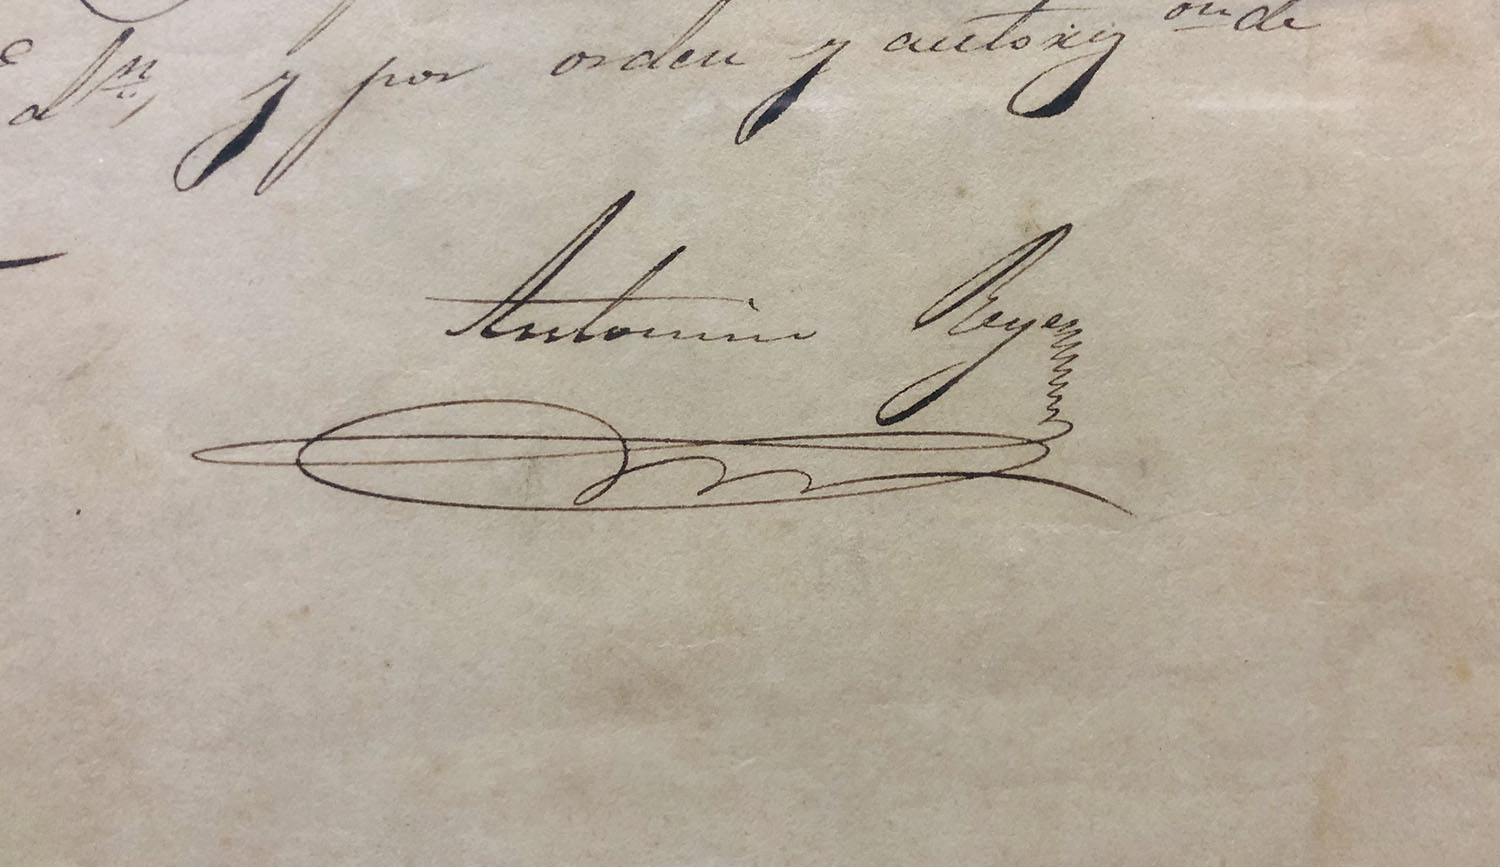 y por orden y autorizon de
Antonino Reyes